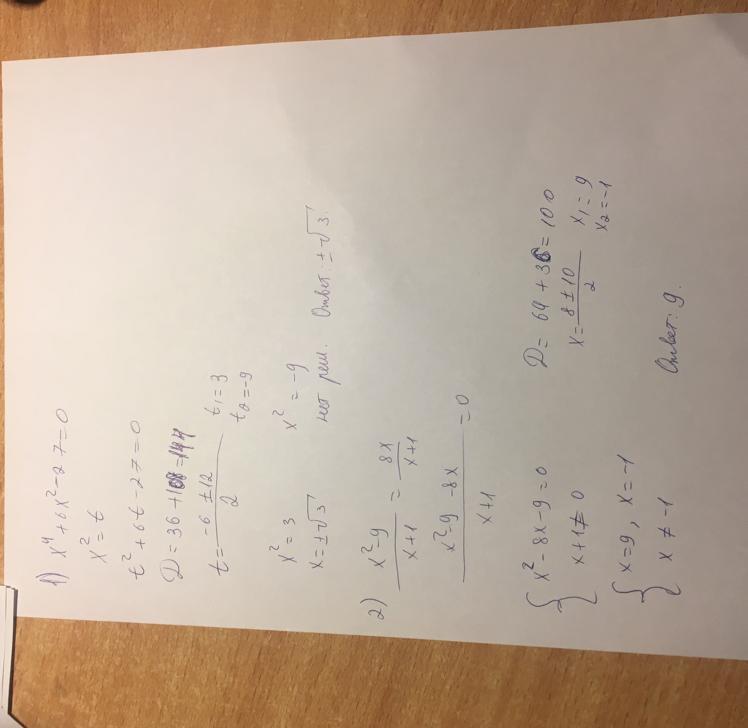 1) x⁴ + 6x² - 27 = 0
x² = t
t² + 6t - 27 = 0
D = 36 + 108 = 144
t = (-6 ± 12)/2 t₁ = 3
t₂ = -9
x² = 3 x² = -9
x = ±√3 нет реш. Ответ: ±√3.
2) (x² - 9)/(x + 1) = 8x/(x + 1)
(x² - 9 - 8x)/(x + 1) = 0
{ x² - 8x - 9 = 0 D = 64 + 36 = 100
x + 1 ≠ 0 x = (8 ± 10)/2 x₁ = 9
x₂ = -1
{ x = 9, x = -1
x ≠ -1 Ответ: 9.